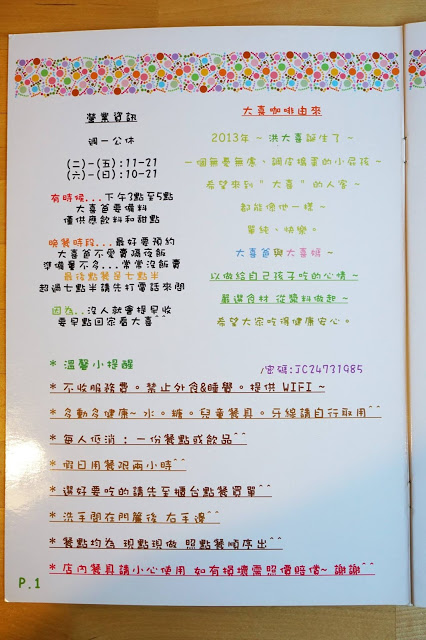 營業資訊
週一公休
(二)-(五):11-21
(六)-(日):10-21
有時候...下午3點至5點
大喜爸要備料
僅供應飲料和甜點
晚餐時段...最好要預約
大喜爸不愛賣隔夜飯
準備量不多...常常沒飯賣
最後點餐是七點半
超過七點半請先打電話來問
因為..沒人就會提早收
要早點回家看大喜^^
大喜咖啡由來
2013年 ~ 洪大喜誕生了 ~
一個無憂無慮、調皮搗蛋的小屁孩 ~
希望來到 " 大喜 " 的人客 ~
都能像他一樣 ~
單純、快樂。
大喜爸與大喜媽 ~
以做給自己孩子吃的心情 ~
嚴選食材 從醬料做起 ~
希望大家吃得健康安心。
* 溫馨小提醒
/密碼:JC24731985
* 不收服務費。禁止外食&睡覺。提供 WIFI ~
* 多動多健康~ 水。糖。兒童餐具。牙線請自行取用^^
* 每人低消 : 一份餐點或飲品^^
* 假日用餐限兩小時^^
* 選好要吃的請先至櫃台點餐買單^^
* 洗手間在門簾後 右手邊^^
* 餐點均為 現點現做 照點餐順序出^^
* 店內餐具請小心使用 如有損壞需照價賠償~ 謝謝^^
P.1